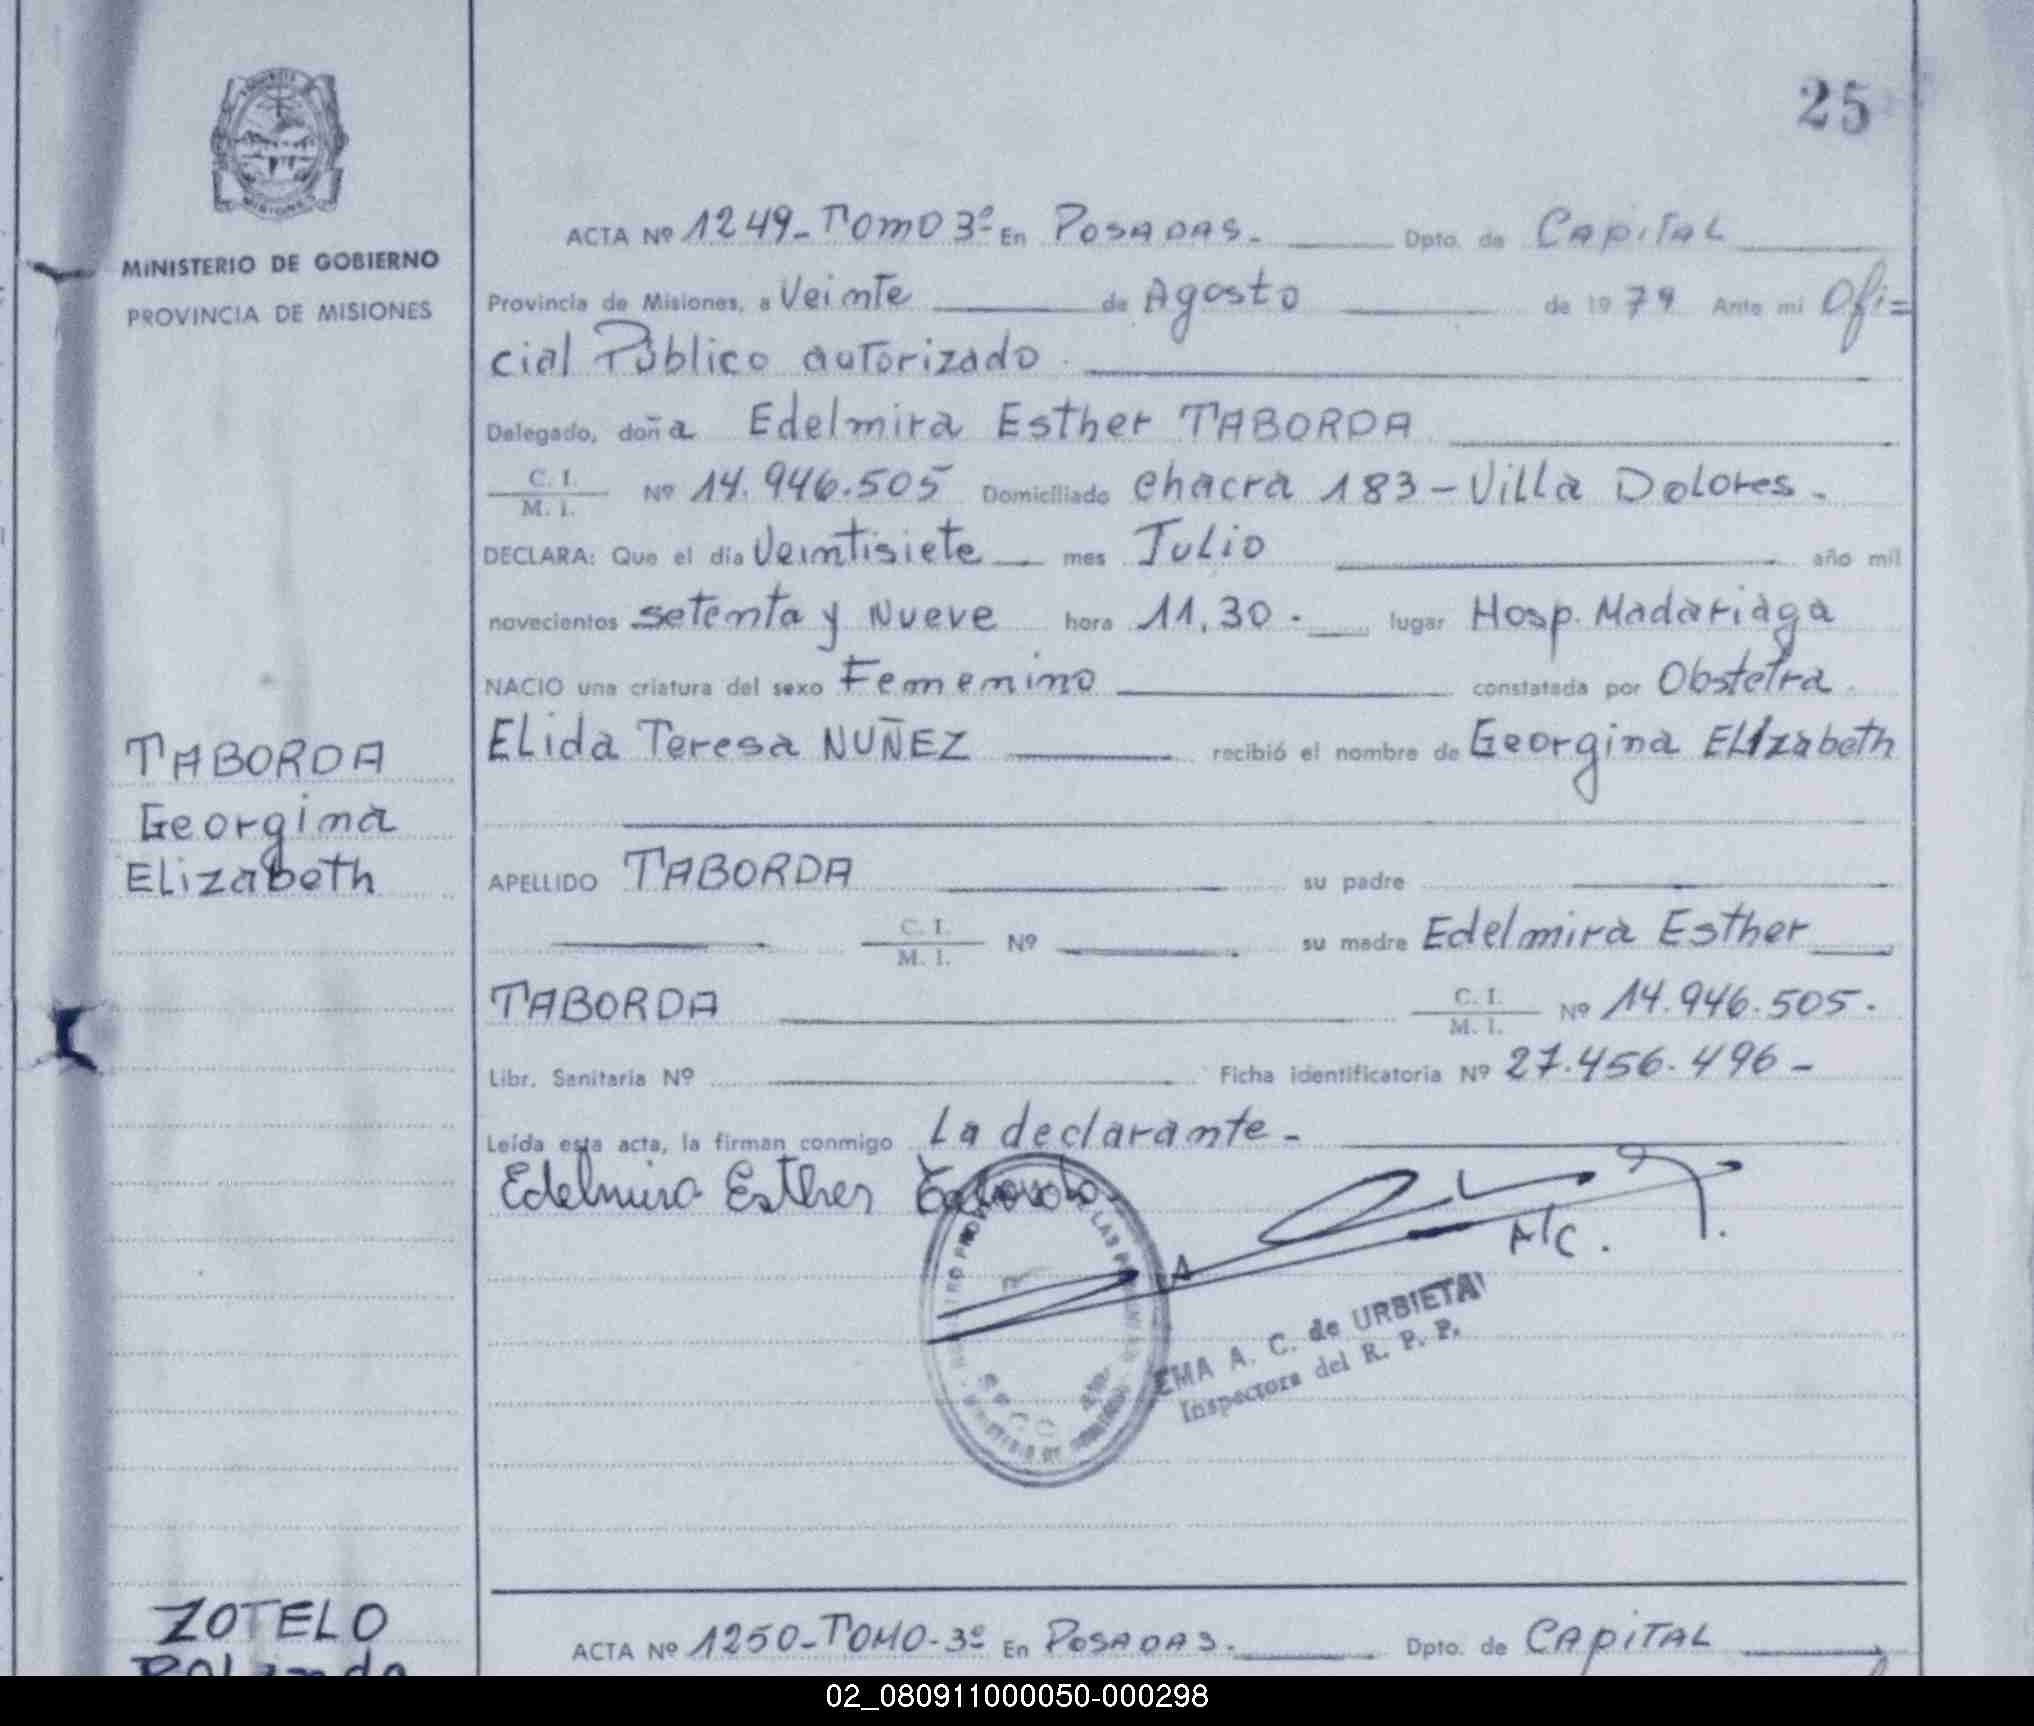 25
MINISTERIO DE GOBIERNO
PROVINCIA DE MISIONES
ACTA Nº 1249-TOMO 3º En POSADAS. Dpto. de CAPITAL
Provincia de Misiones, a Veinte de Agosto de 1979 Ante mi Ofi=
cial Público autorizado
Delegado, doña Edelmira Esther TABORDA
C. I.
M. I.
Nº 14.946.505 Domiciliado chacra 183-Villa Dolores.
DECLARA: Que el día Veintisiete mes Julio año mil
novecientos setenta y Nueve hora 11,30. lugar Hosp. Madariaga
NACIO una criatura del sexo Femenino constatada por Obstetra
Elida Teresa NUÑEZ recibió el nombre de Georgina Elizabeth
TABORDA
Georgina
Elizabeth
APELLIDO TABORDA su padre
C. I.
M. I.
Nº su madre Edelmira Esther
TABORDA
C. I.
M. I.
Nº 14.946.505.
Libr. Sanitaria Nº Ficha identificatoria Nº 27.456.496-
Leída esta acta, la firman conmigo La declarante-
Edelmira Esther Taborda
A/C.
EMA A. C. de URBIETA
Inspectora del R. P. P.
ZOTELO
Rolando
ACTA Nº 1250-TOMO-3º En POSADAS. Dpto. de CAPITAL
02_080911000050-000298